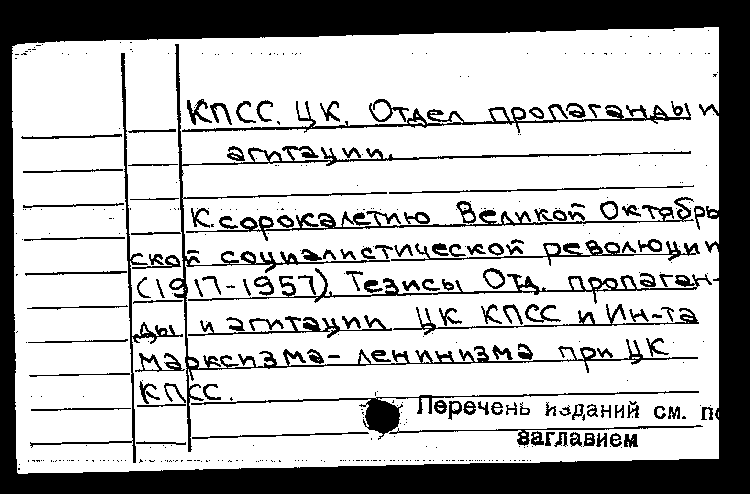 КПСС. ЦК. Отдел пропаганды и
агитации.
К сорокалетию Великой Октябрь
ской социалистической революции
(1917-1957). Тезисы Отд. пропаган-
ды и агитации ЦК КПСС и Ин-та
марксизма-ленинизма при ЦК
КПСС.
Перечень изданий см. по
заглавием